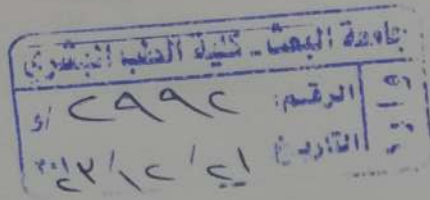 جامعة البعث - كلية الطب البشري
الرقم: ٢٩٩٢ /
التاريخ ٢١ / ١٢ /